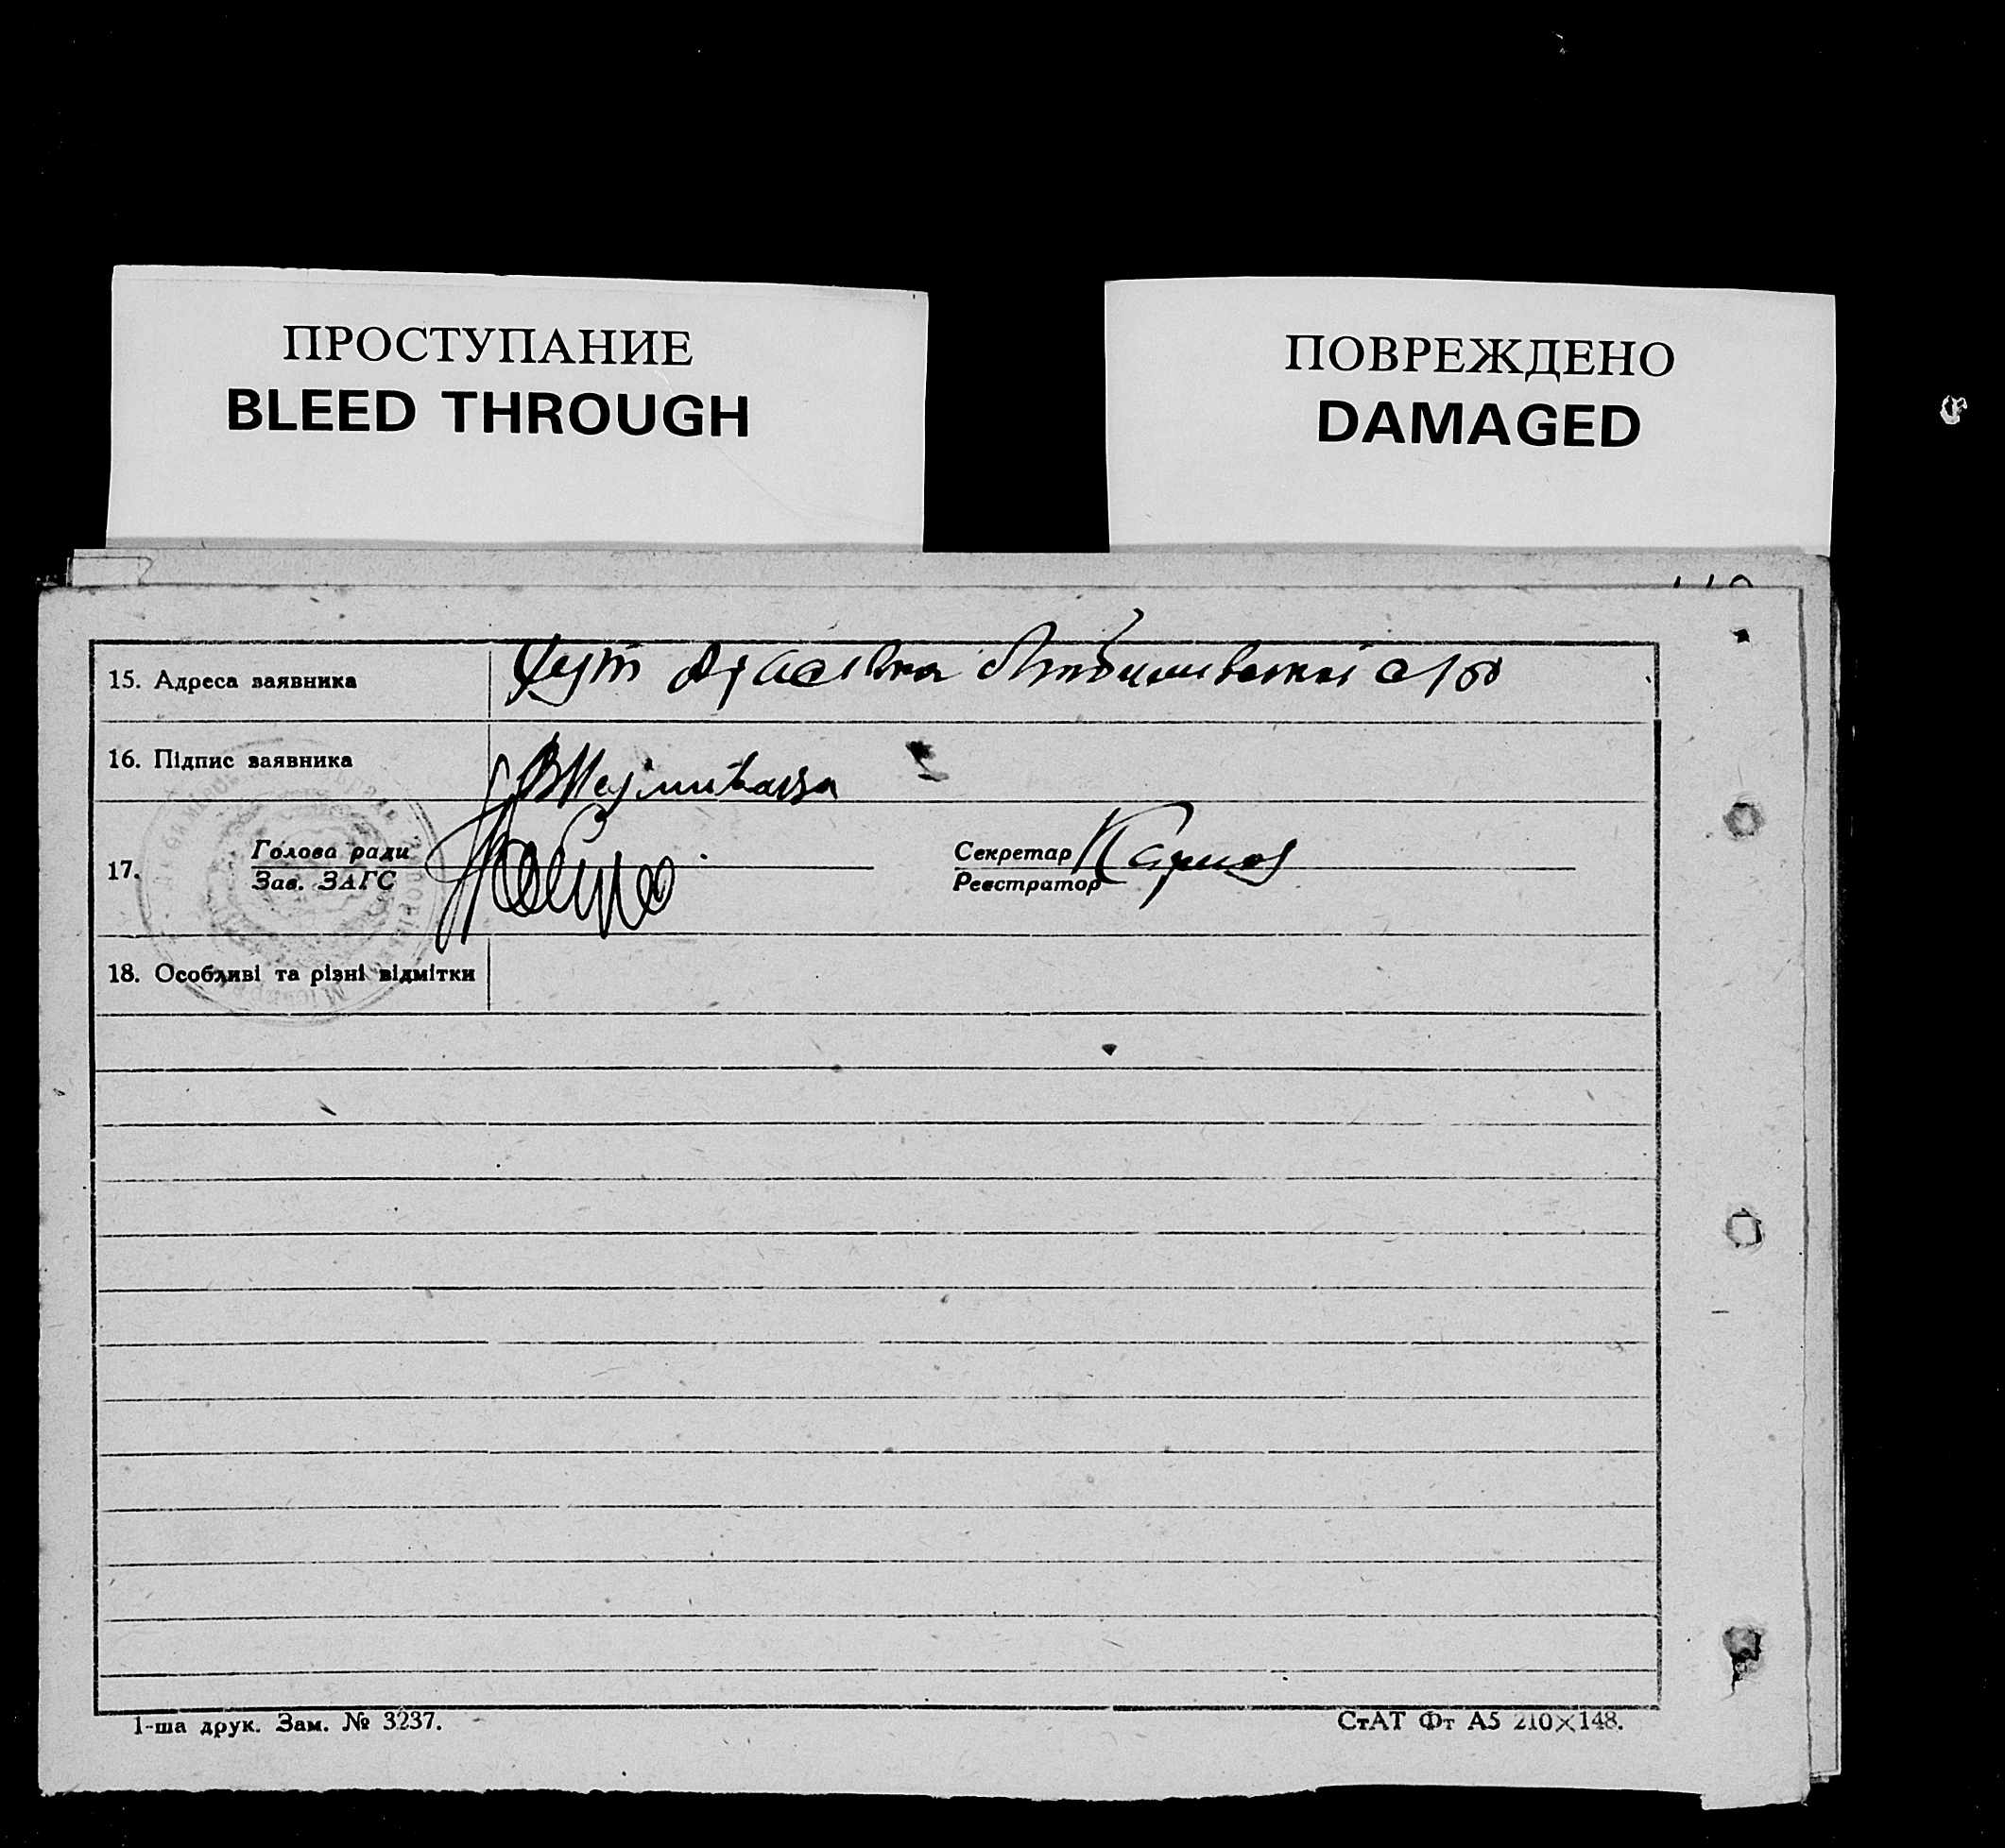 ПРОСТУПАНИЕ
BLEED THROUGH
ПОВРЕЖДЕНО
DAMAGED
15. Адреса заявника Хут
16. Підпис заявника
17. Голова ради
Зав. ЗАГС
Секретар
Реєстратор
18. Особливі та різні відмітки
1-ша друк. Зам. № 3237.
СтАТ Фт А5 210×148.